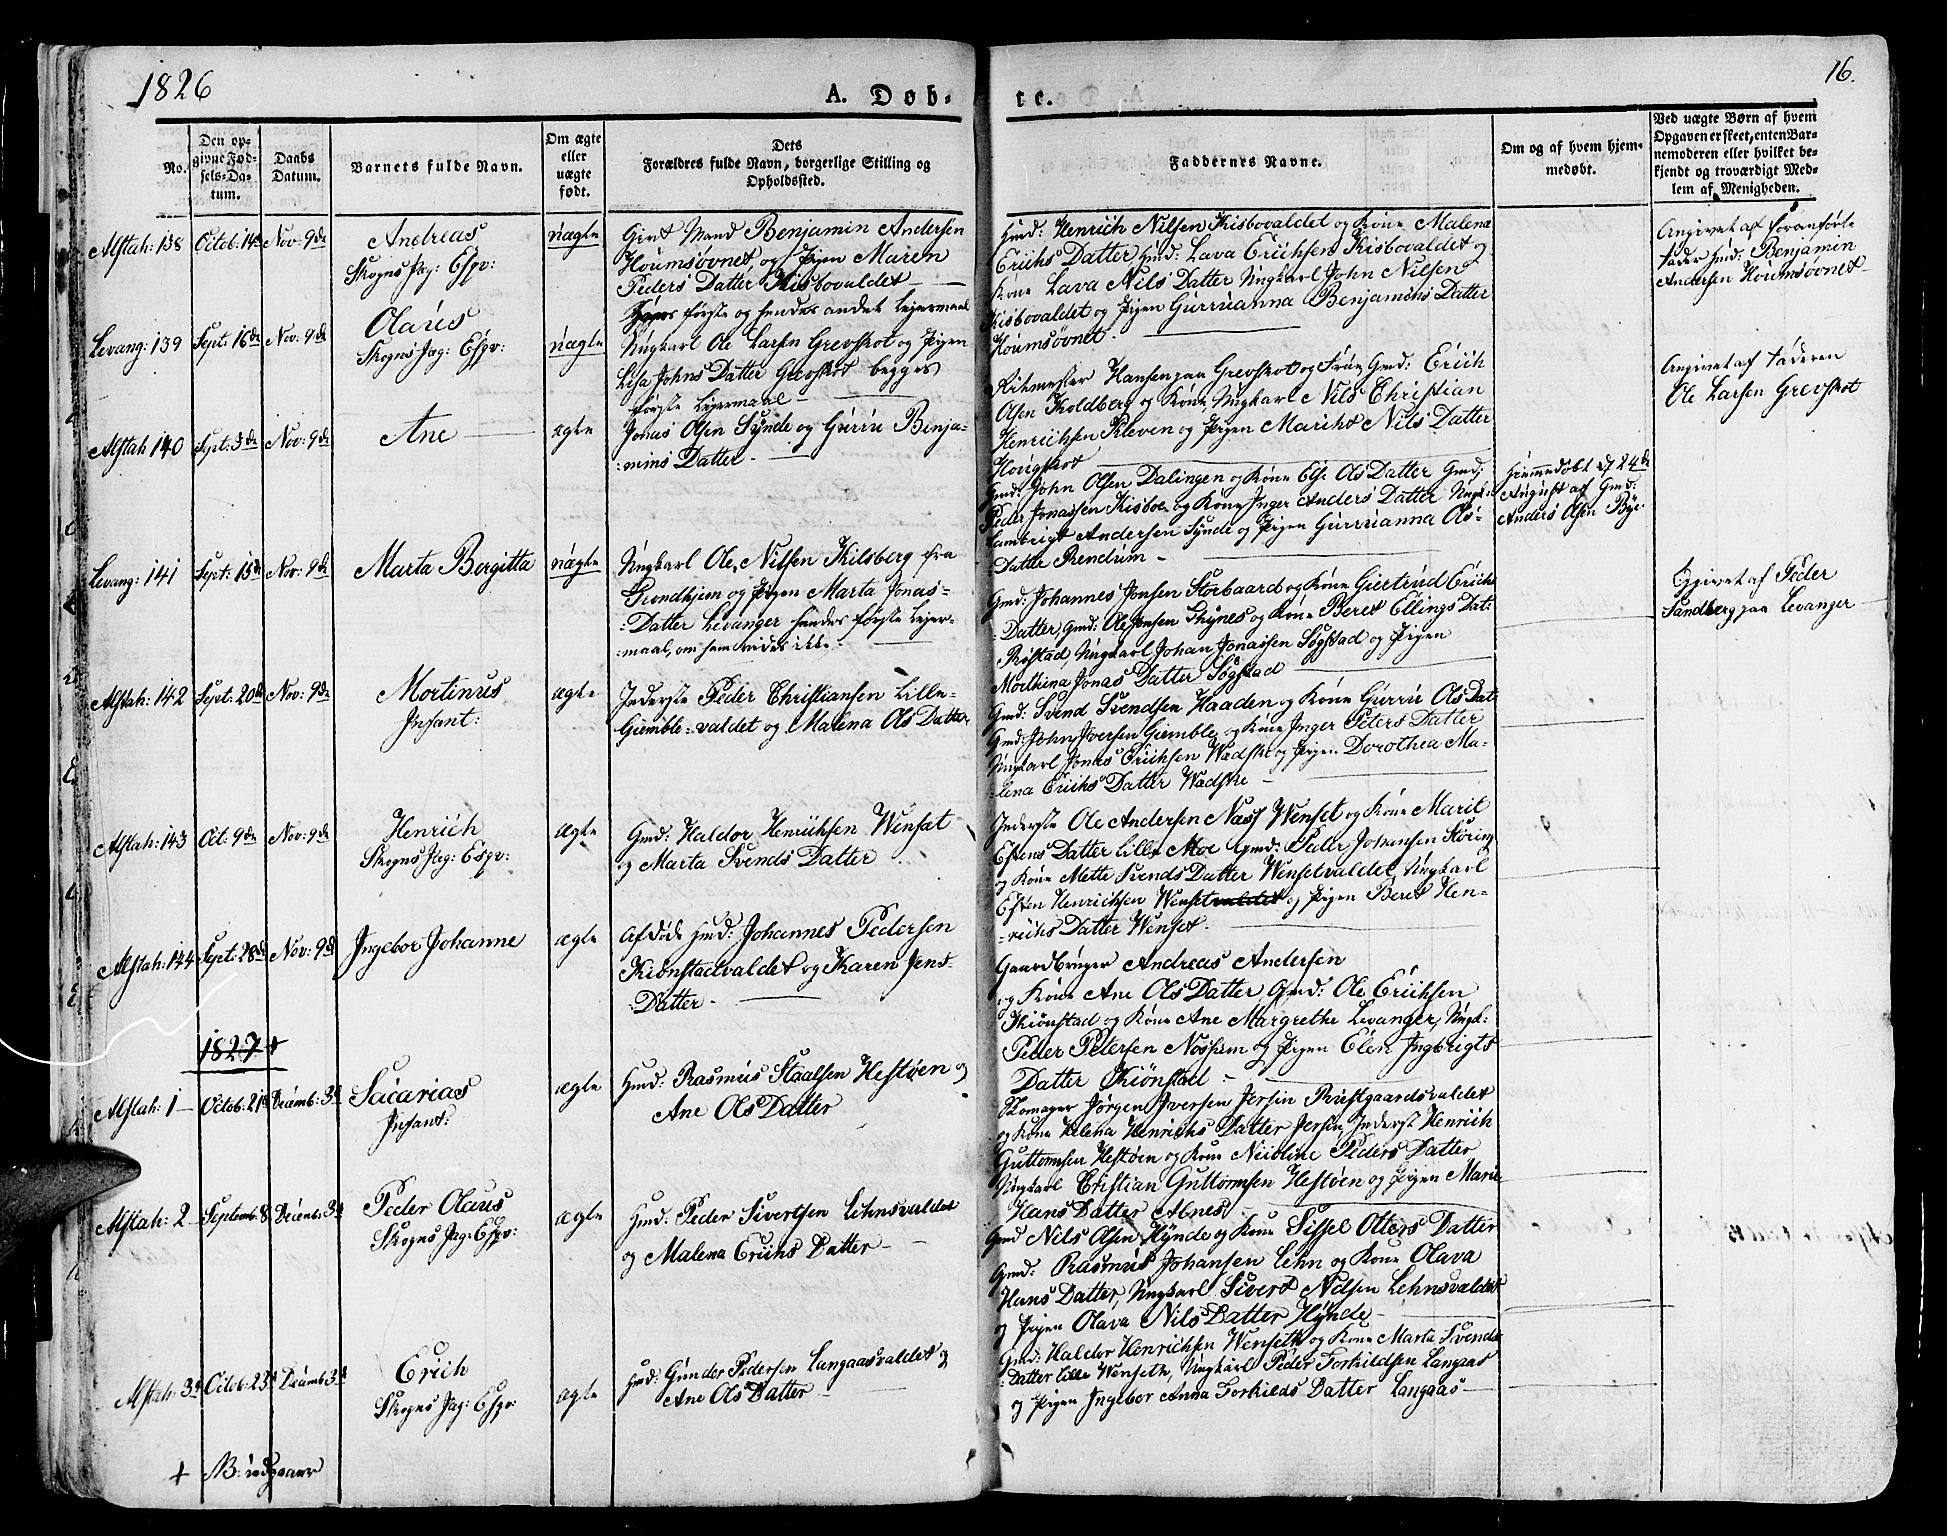 1826
A. Døb-
te.
16.
No.
Den op-
givne Fød-
sels-Da-
tum.
Daabs
Datum.
Barnets fulde Navn.
Om ægte
eller
uægte
født.
Dets
Forældres fulde Navn, borgerlige Stilling og
Opholdssted.
Faddernes Navne.
Om og af hvem hjem-
medøbt.
Ved uægte Børn af hvem
Opgaven er skeet, enten Bar-
nemoderen eller hvilket be-
kjendt og troværdigt Med-
lem af Menigheden.
Alstah: 138 Octob: 14de Nov: 9de
Andreas
Skogns Jag: Espv:
uægte
Givt Mand Benjamin Andersen
Houmsovnet og Pigen Maren
Peders Datter Kisbovaldet
første og hendes andet Lejermaal
Hmd: Henrich Nilsen Kisbovaldet og Kone Malena
Erichs Datter, Hmd: Lava Erichsen Kisbovaldet og
Kone Lava Nils Datter Ungkarl John Nilsen
Kisbovaldet og Pigen Gurruanna Benjamins Datter
Houmsovnet.
Angivet af foranførte
Fader Hmd: Benjamin
Andersen Houmsovnet
Levang: 139 Sept: 16de Nov: 9de
Olaus
Skogns Jag: Espv:
uægte
Ungkarl Ole Larsen Grevskot og Pigen
Lisa Johns Datter Grevskot begges
første Lejermaal
Ritmester Hansen paa Grevskot og Frue Gmd: Erich
Olsen Koldberg og Kone, Ungkarl Nils Christian
Henrichsen Kleven og Pigen Marihe Nils Datter
Hougskot
Angivet af Faderen
Ole Larsen Grevskot
Alstah 140 Sept: 3de Nov: 9de
Ane
ægte
Jonas Olsen Synde og Gurru Benja-
:mins Datter
Gmd: John Olsen Dalingen og Kone Els: Ols Datter Gmd:
Peder Jonassen Kisboe og Kone Inger Anders Datter, Ungk:
Lambrigt Andersen Synde og Pigen Gurruanna Ols-
Datter Rendum
Hiemedøbt d. 24de
August af Gmd:
Anders Olsen Bye
Levang: 141 Sept: 15de Nov: 9de
Marta Bergitta
uægte
Ungkarl Ole Nilsen Kilsberg fra
Trondhjem og Pigen Marta Jonas-
:Datter Levanger hendes første Lejer-
:maal, om hem vides ikke.
Gmd: Johannes Jonsen Storbaard og Kone Giertrud Erichs
:Datter, Gmd: Ole Jonsen Thynes og Kone Beret Ellings Dat:
Røstad, Ungkarl Johan Jonassen Søgstad og Pigen
Morthena Jonas Datter Søgstad
Opgivet af Peder
Sandberg paa Levanger
Alstah: 142 Sept: 20de Nov: 9de
Mortinus
Infant:
ægte
Inderste Peder Christiansen Lille-
Giemble-valdet og Malena Ols Datter
Gmd: Svend Svendsen Haaden og Kone Gurru Ols Dat
Gmd: John Iversen Giemble og Kone Inger Peters Datter
Ungkarl Jonas Erichsen Wadske og Pigen Dorothea Ma-
:lena Erichs Datter Wadske
Alstah: 143 Oct: 9de Nov: 9de
Henrich
Skogns Jag: Espv:
ægte
Gmd: Haldor Henrichsen Wenset
og Marta Svends Datter
Inderste Ole Andersen Næss Wenset og Kone Marit
Estens Datter Lille Moe Gmd: Peder Johansen Støring
og Kone Mette Svends Datter Wensetvaldet, Ungkarl
Esten Henrichsen Wensetvaldet og Pigen Beret Hen-
:richs Datter Wenset.
Alstah: 144 Sept: 28de Nov: 9de
Ingebor Johanne
ægte
Afdøde Hmd: Johannes Pedersen
Kiønstadvaldet og Karen Jens-
:Datter
Gaardbruger Andreas Andersen
og Kone Ane Ols Datter Gmd: Ole Erichsen
Kiønstad og Kone Ane Margrethe Levanger, Ungk:
Peder Petersen Nossum og Pigen Elen Ingbrigts
Datter Kiønstad
1827 +
Alstah: 1 Octob: 21de Decemb: 3de
Sacarias
Infant:
ægte
Hmd: Rasmus Staalsen Hestøen og
Ane Ols Datter
Skomager Jørgen Iversen Jersin Rustgaardsvaldet
og Kone Helena Henrichs Datter Jersin, Inderst Henrich
Guttormsen Hestøen og Kone Nicoline Peders Datter
Ungkarl Cristian Guttormsen Hestøen og Pigen Marie
Hans Datter Alnes
Alstah: 2 Septemb: 8 Decemb: 3de
Peder Olaus
Skogns Jag: Espv:
ægte
Hmd: Peder Sivertsen Lehnsvaldet
og Malena Erichs Datter
Gmd Nils Olsen Hynde og Kone Sissel Otters Datter
Gmd: Rasmus Johansen Lehn og Kone Olava
Hans Datter, Ungkarl Sivert Nilsen Lehnsvaldet
og Pigen Olava Nils Datter Hynde
Alstah: 3 Octob: 23de Decemb 3de
Erich
Skogns Jag: Espv:
ægte
Hmd: Gunder Pedersen Langaasvaldet og
Ane Ols Datter
Gmd: Haldor Henrichsen Wenseth og Kone Marta Svends
:Datter Lille Wenseth, Ungkarl Peder Torkildsen Langaas
og Pigen Ingebor Anna Torkilds Datter Langaas
+ NB: udgaaer